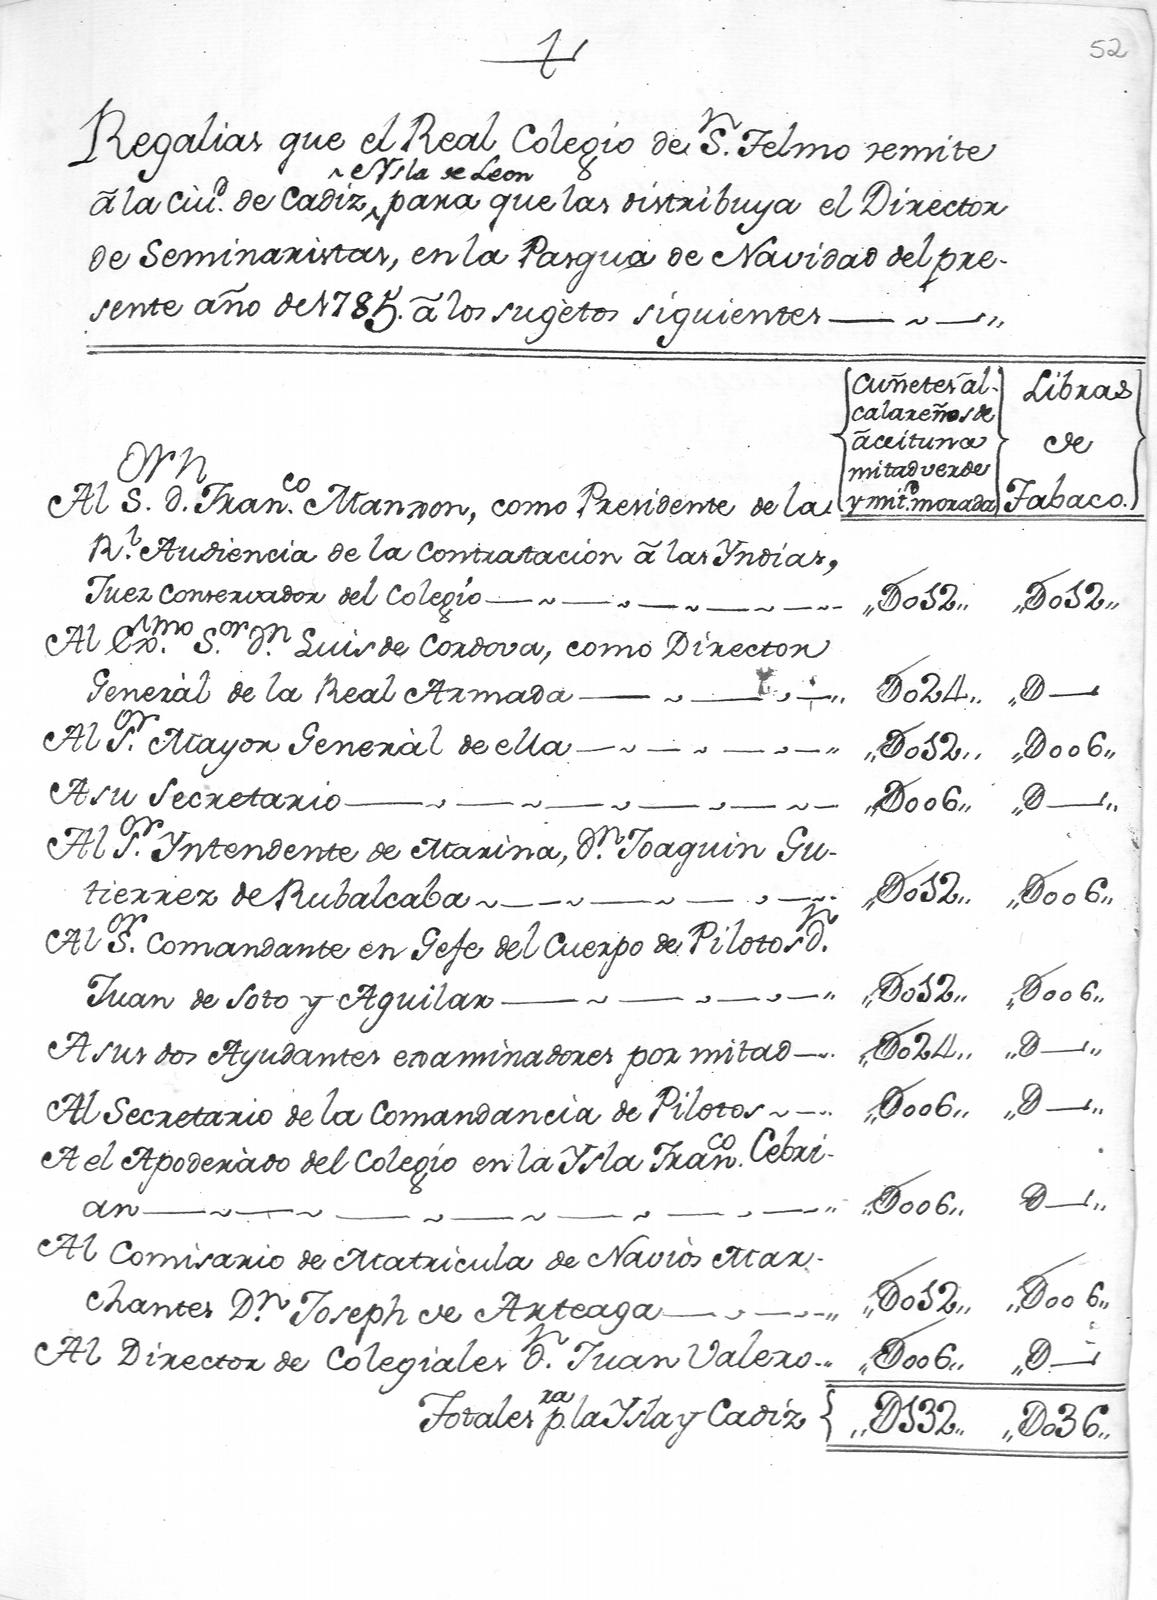 52
Regalias que el Real Colegio de Sn. Telmo remite
â la Ciud. de Cadiz, é Ysla de Leon para que las distribuya el Director
de Seminaristas, en la Pasqua de Navidad del pre-
sente año de 1785. â los sugetos siguientes
Cuñetes al-
calareños de
aceituna
mitad verde
y mitd. morada
Libras
de
Tabaco.
Al Sor. Dn. Franco. Manxon, como Presidente de la
Rl. Audiencia de la Contratacion â las Yndias,
Juez Conservador del Colegio „D012„ „D012„
Al Exmo. Sor. Dn. Luis de Cordova, como Director
General de la Real Armada D024„ „D—
Al Sor. Mayor General de ella „D012„ „D006„
A su Secretario „D006„ „D—„
Al Sor. Yntendente de Marina, Dn. Joaquin Gu-
tierrez de Rubalcaba „D012„ „D006„
Al Sor. Comandante en Gefe del Cuerpo de Pilotos Dn.
Juan de Soto y Aguilar „D012„ „D006„
A sus dos Ayudantes examinadores por mitad „D024„ „D—„
Al Secretario de la Comandancia de Pilotos „D006„ „D—„
A el Apoderado del Colegio en la Ysla Franco. Cebri-
an „D006„ D—„
Al Comisario de Matricula de Navios Mar-
chantes Dn. Joseph de Arteaga „D012„ „D006„
Al Director de Colegiales Dn. Juan Valero „D006„ „D—
Totales pra. la Ysla y Cadiz „D132„ „D036„